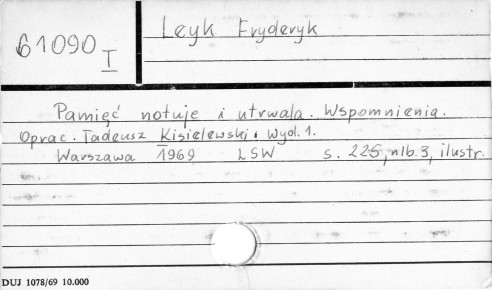 61090 I
Leyk Fryderyk
Pamięć notuje i utrwala. Wspomnienia.
Oprac. Tadeusz Kisielewski. Wyd. 1.
Warszawa 1969 LSW s. 225, nlb. 3, ilustr.
DUJ 1078/69 10.000